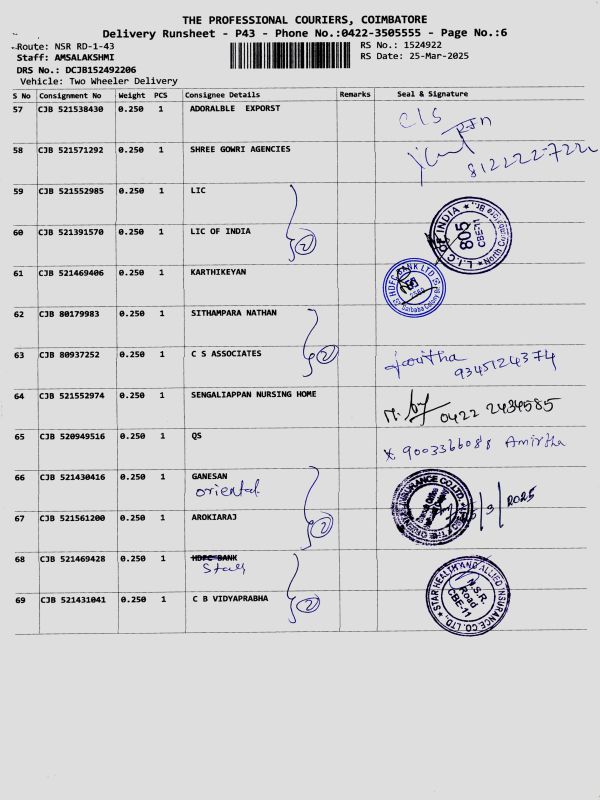 THE PROFESSIONAL COURIERS, COIMBATORE
Delivery Runsheet - P43 - Phone No.:0422-3505555 - Page No.:6
Route: NSR RD-1-43 RS No.: 1524922
Staff: AMSALAKSHMI RS Date: 25-Mar-2025
DRS No.: DCJB152492206
Vehicle: Two Wheeler Delivery
S No Consignment No Weight PCS Consignee Details Remarks Seal & Signature
57 CJB 521538430 0.250 1 ADORALBLE EXPORST CIS
58 CJB 521571292 0.250 1 SHREE GOWRI AGENCIES
59 CJB 521552985 0.250 1 LIC
60 CJB 521391570 0.250 1 LIC OF INDIA 2 L.I.C OF INDIA 805 CBE-11
61 CJB 521469406 0.250 1 KARTHIKEYAN HDFC BANK LTD
62 CJB 80179983 0.250 1 SITHAMPARA NATHAN
63 CJB 80937252 0.250 1 C S ASSOCIATES 2 9345124374
64 CJB 521552974 0.250 1 SENGALIAPPAN NURSING HOME 0422 2434585
65 CJB 520949516 0.250 1 QS 9003366088 Amirtha
66 CJB 521430416 0.250 1 GANESAN
oriental
67 CJB 521561200 0.250 1 AROKIARAJ 2
68 CJB 521469428 0.250 1 HDFC BANK
Star
69 CJB 521431041 0.250 1 C B VIDYAPRABHA 2 STAR HEALTH AND ALLIED INSURANCE CO.LTD., N.S.R. Road CBE-11